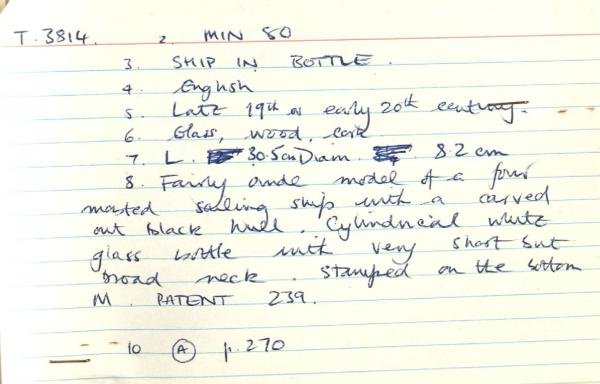 T.3814. 2. MIN 80
3. SHIP IN BOTTLE.
4. English
5. Late 19th or early 20th century.
6. Glass, wood, cork
7. L. 30.5cm Diam. 8.2 cm
8. Fairly crude model of a four
masted sailing ship with a carved
out black hull. Cylindrical white
glass bottle with very short but
broad neck. Stamped on the bottom
M. PATENT 239.
10 A p.270